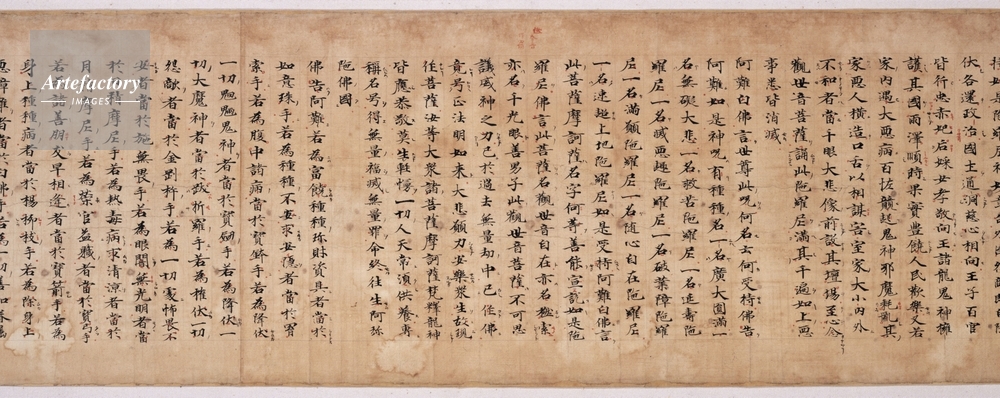 伏各還政治國土通洞慈心相向王子百官
皆行忠赤妃后婇女孝敬向王諸龍鬼神擁
護其國雨澤順時果實豊饒人民歡樂又若
家内遇大惡病百怪競起鬼神邪魔耗亂其
家惡人橫造口舌以相謀害室家大小内外
不和者當千眼大悲像前設其壇場至心念
觀世音菩薩誦此陀羅尼滿其千遍如上惡
事悉皆消滅
阿難白佛言世尊此呪何名云何受持佛告
阿難如是神呪有種種名一名廣大圓滿一
名無礙大悲一名救苦陀羅尼一名延壽陀
羅尼一名滅惡趣陀羅尼一名破業障陀羅
尼一名滿願陀羅尼一名隨心自在陀羅尼
一名速超上地陀羅尼如是受持阿難白佛言
此菩薩摩訶薩名字何等善能宣說如是陀
羅尼佛言此菩薩名觀世音自在亦名撚索
亦名千光眼善男子此觀世音菩薩不可思
議威神之力已於過去無量劫中已作佛
竟号正法明如来大悲願力安樂衆生故現
作菩薩汝等大衆諸菩薩摩訶薩梵釋龍神
皆應恭敬莫生輕慢一切人天常須供養專
稱名号得無量福滅無量罪命終往生阿弥
陀佛國
佛告阿難若為富饒種種珎財資具者當於
如意珠手若為種種不安求安隱者當於羂
索手若為腹中諸病當於寶鉢手若為降伏
一切魍魎鬼神者當於寶劒手若為降伏一
切大魔神者當於跋折羅手若為摧伏一切
怨敵者當於金剛杵手若為一切處怖畏不
安者當於施無畏手若為眼闇無光明者當
於日精摩尼手若為熱毒病求清涼者當於
月精摩尼手若為榮官益職者當於寶弓手
若為善朋友早相逢者當於寶箭手若為
身上種種病者當於楊柳枝手若為除身上
Artefactory
IMAGES